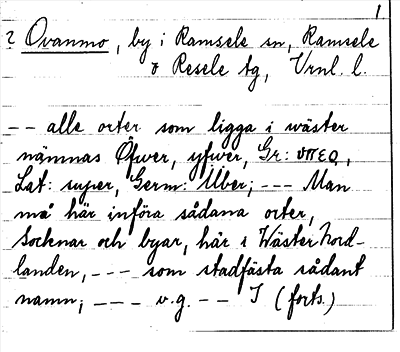 1
? Ovanmo, by i Ramsele sn, Ramsele
o Resele tg, Vrnl. l.
-- alle orter som ligga i wäster
nämnas Öfwer, yfwer, Gr: ὑπερ,
Lat: super, Germ: Über; --- Man
må här införa sådana orter,
Socknar och byar, här i WästerNord-
landen, --- som stadfästa sådant
namn; --- v.g. -- I (forts.)